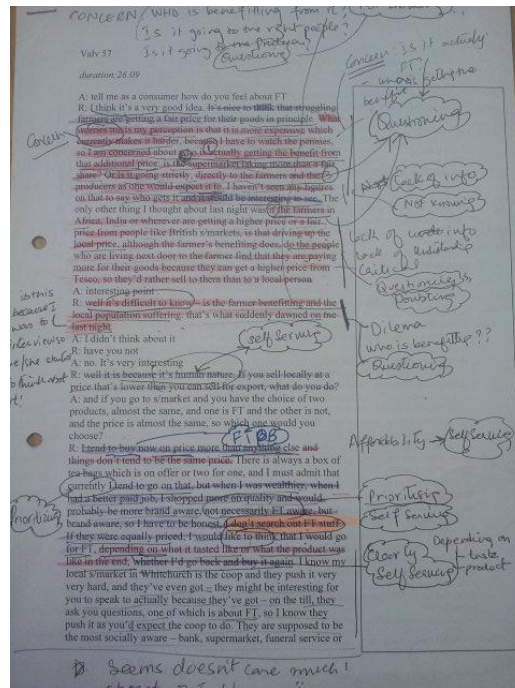 CONCERN / WHO is benefitting from it,
Is it going to the right people?
Valv 57
Is it going to the Producer
Questioning
duration 26.09
Concern: Is it actually
FT?
who is getting the
benefit
A: tell me as a consumer how do you feel about FT
R: I think it's a very good idea. It's nice to think that struggling
farmers are getting a fair price for their goods in principle. What
worries me is my perception is that it is more expensive which
currently makes it harder, because I have to watch the pennies,
so I am concerned about who is actually getting the benefit from
that additional price, is the supermarket taking more than a fair
share? Or is it going strictly, directly to the farmers and the
producers as one would expect it to. I haven't seen any figures
on that to say who gets it and it would be interesting to see. The
only other thing I thought about last night was if the farmers in
Africa, India or wherever are getting a higher price or a fair
price from people like British s/markets, is that driving up the
local price, although the farmer's benefiting does, do the people
who are living next door to the farmer find that they are paying
more for their goods because they can get a higher price from
Tesco, so they'd rather sell to them than to a local person
A: interesting point
R: well it's difficult to know – is the farmer benefitting and the
local population suffering, that's what suddenly dawned on me
last night
A: I didn't think about it
R: have you not
A: no. It's very interesting
R: well it is because it's human nature. If you sell locally at a
price that's lower than you can sell for export, what do you do?
A: and if you go to s/market and you have the choice of two
products, almost the same, and one is FT and the other is not,
and the price is almost the same, so which one would you
choose?
R: I tend to buy now on price more than anything else and
things don't tend to be the same price. There is always a box of
tea bags which is on offer or two for one, and I must admit that
currently I tend to go on that, but when I was wealthier, when I
had a better paid job, I shopped more on quality and would
probably be more brand aware, not necessarily FT aware, but
brand aware, so I have to be honest, I don't search out FT stuff.
If they were equally priced, I would like to think that I would go
for FT, depending on what it tasted like or what the product was
like in the end, whether I'd go back and buy it again. I know my
local s/market in Whitchurch is the coop and they push it very
very hard, and they've even got – they might be interesting for
you to speak to actually because they've got – on the till, they
ask you questions, one of which is about FT, so I know they
push it as you'd expect the coop to do. They are supposed to be
the most socially aware – bank, supermarket, funeral service or
Concern
is this
because I
was to
interview so
he/she
to think about
it!
Self Serving
Prioritising
Questioning
Lack of info
Not Knowing
lack of info
lack of
Questioning
Doubting
Dilema
who is benefitting??
Questioning
Affordability
Self Serving
Prioritising
Self Serving
Clearly
Self Serving
Depending on
taste
product
Seems doesn't care much!